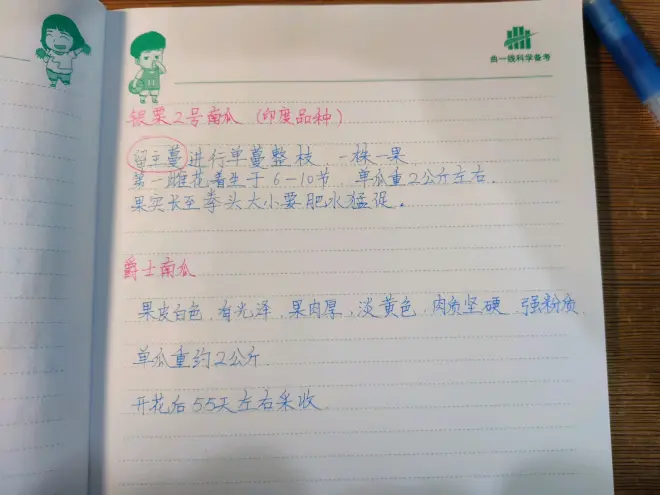 曲一线科学备考
银栗2号南瓜（印度品种）
留主蔓进行单蔓整枝、一株一果
第一雌花着生于6-10节、单瓜重2公斤左右.
果实长至拳头大小要肥水猛促。
爵士南瓜
果皮白色、有光泽、果肉厚，淡黄色、肉质坚硬、强粉质.
单瓜重约2公斤
开花后55天左右采收